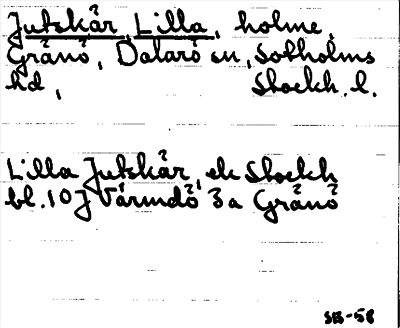 Jutskär, Lilla, holme,
Gränö, Dalarö sn, Sotholms
hd, Stockh. l.
Lilla Jutskär, ek Stockh
bl. 10 J Värmdö 3a Gränö
SB-58